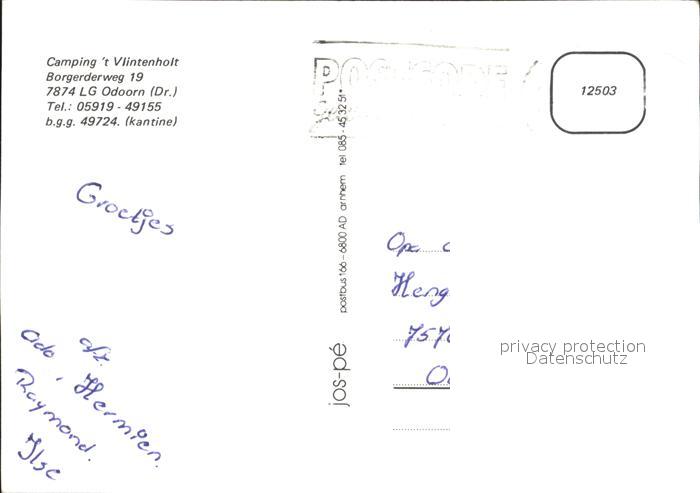 Camping 't Vlintenholt
Borgerderweg 19
7874 LG Odoorn (Dr.)
Tel.: 05919 - 49155
b.g.g. 49724. (kantine)
POSTCODE
12503
Groetjes
afz. Hermien.
Ado,
Raymond.
Ilse
jos-pé
postbus 166 – 6800 AD arnhem tel 085 - 45 32 51*
Opa
Heng
757
O
privacy protection
Datenschutz